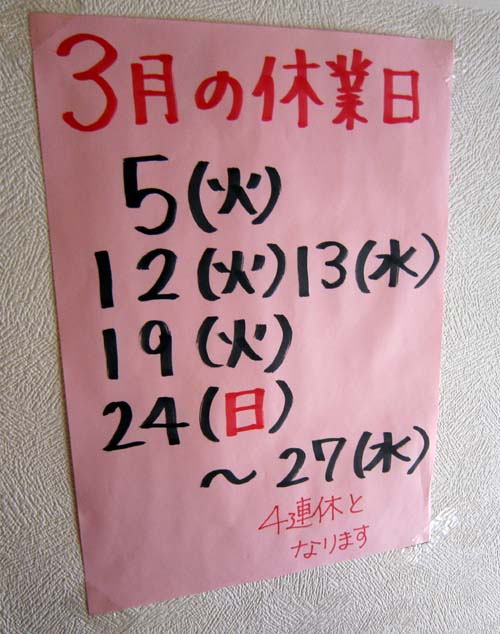 3月の休業日
5(火)
12(火)13(水)
19(火)
24(日)
～27(水)
4連休と
なります